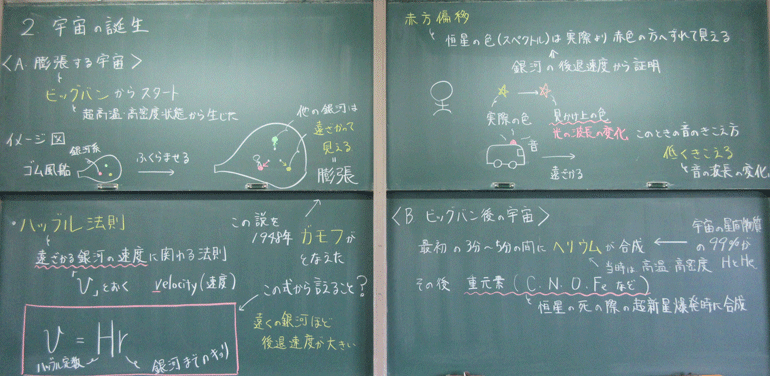 2 宇宙の誕生
〈A 膨張する宇宙〉
ビッグバンからスタート
超高温・高密度状態から生じた
イメージ図
銀河系
ゴム風船
ふくらませる
他の銀河は
遠ざかって
見える
膨張
・ハッブル法則
遠ざかる銀河の速度に関わる法則
「v」とおく velocity(速度)
v = Hr
ハッブル定数
銀河までのキョリ
この説を
1948年 ガモフが
となえた
この式から言えること?
遠くの銀河ほど
後退速度が大きい
赤方偏移
恒星の色(スペクトル)は実際より赤色の方へずれて見える
銀河の後退速度から証明
実際の色
見かけ上の色
光の波長が変化
音
遠ざかる
このときの音のきこえ方
低くきこえる
音の波長が変化。
〈B ビッグバン後の宇宙〉
最初の3分~5分の間にヘリウムが合成
宇宙の星間物質
の99%が
H と He
当時は高温 高密度
その後 重元素(C.N.O.Feなど)
恒星の死の際の超新星爆発時に合成